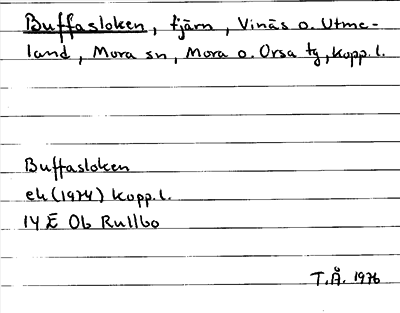 Buffasloken, tjärn, Vinäs o. Utme-
land, Mora sn, Mora o. Orsa tg, Kopp. l.
Buffasloken
ek (1974) Kopp. l.
14 E Ob Rullbo
T.Å. 1976